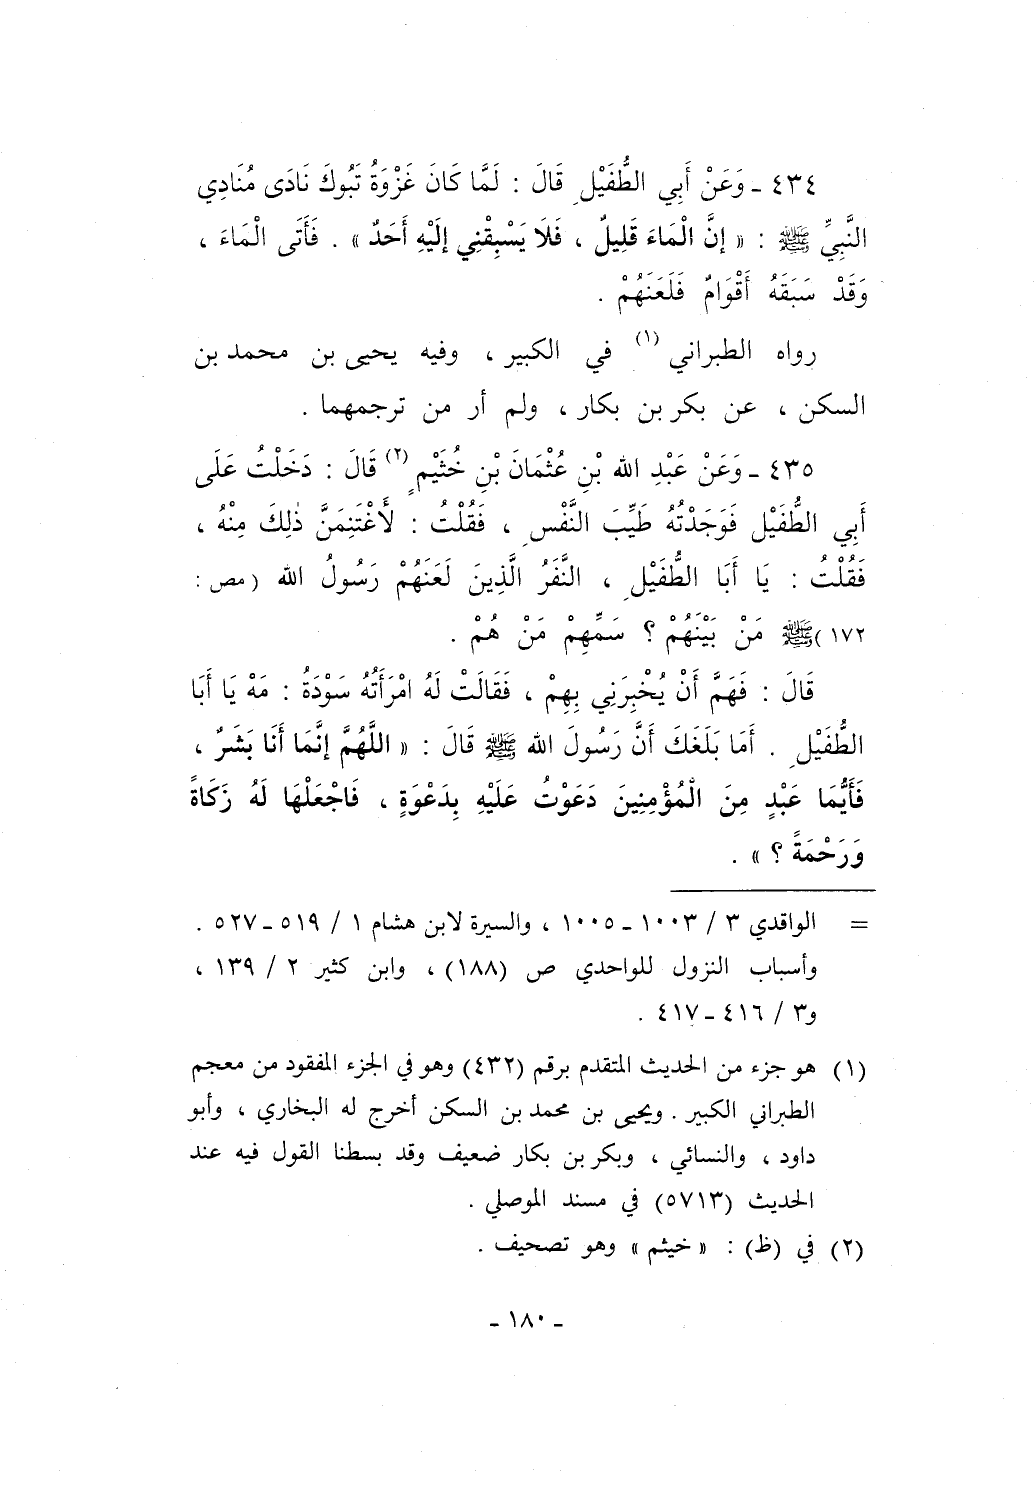 ٤٣٤ ـ وَعَنْ أَبِي الطُّفَيْلِ قَالَ : لَمَّا كَانَ غَزْوَةُ تَبُوكَ نَادَى مُنَادِي
النَّبِيِّ ﷺ : « إنَّ الْمَاءَ قَلِيلٌ ، فَلاَ يَسْبِقْنِي إلَيْهِ أَحَدٌ » . فَأَتَى الْمَاءَ ،
وَقَدْ سَبَقَهُ أَقْوَامٌ فَلَعَنَهُمْ .
رواه الطبراني (١) في الكبير ، وفيه يحيى بن محمد بن
السكن ، عن بكر بن بكار ، ولم أر من ترجمهما .
٤٣٥ ـ وَعَنْ عَبْدِ الله بْنِ عُثْمَانَ بْنِ خُثَيْمٍ (٢) قَالَ : دَخَلْتُ عَلَى
أَبِي الطُّفَيْلِ فَوَجَدْتُهُ طَيِّبَ النَّفْسِ ، فَقُلْتُ : لأَغْتَنِمَنَّ ذٰلِكَ مِنْهُ ،
فَقُلْتُ : يَا أَبَا الطُّفَيْلِ ، النَّفَرُ الَّذِينَ لَعَنَهُمْ رَسُولُ الله ( مص :
١٧٢ ) ﷺ مَنْ بَيْنَهُمْ ؟ سَمِّهِمْ مَنْ هُمْ .
قَالَ : فَهَمَّ أَنْ يُخْبِرَنِي بِهِمْ ، فَقَالَتْ لَهُ امْرَأَتُهُ سَوْدَةُ : مَهْ يَا أَبَا
الطُّفَيْلِ . أَمَا بَلَغَكَ أَنَّ رَسُولَ الله ﷺ قَالَ : « اللَّهُمَّ إنَّمَا أَنَا بَشَرٌ ،
فَأَيُّمَا عَبْدٍ مِنَ الْمُؤْمِنِينَ دَعَوْتُ عَلَيْهِ بِدَعْوَةٍ ، فَاجْعَلْهَا لَهُ زَكَاةً
وَرَحْمَةً ؟ » .
= الواقدي ٣ / ١٠٠٣ ـ ١٠٠٥ ، والسيرة لابن هشام ١ / ٥١٩ ـ ٥٢٧ .
وأسباب النزول للواحدي ص (١٨٨) ، وابن كثير ٢ / ١٣٩ ،
و٣ / ٤١٦ ـ ٤١٧ .
(١) هو جزء من الحديث المتقدم برقم (٤٣٢) وهو في الجزء المفقود من معجم
الطبراني الكبير . ويحيى بن محمد بن السكن أخرج له البخاري ، وأبو
داود ، والنسائي ، وبكر بن بكار ضعيف وقد بسطنا القول فيه عند
الحديث (٥٧١٣) في مسند الموصلي .
(٢) في (ظ) : « خيثم » وهو تصحيف .
ـ ١٨٠ ـ